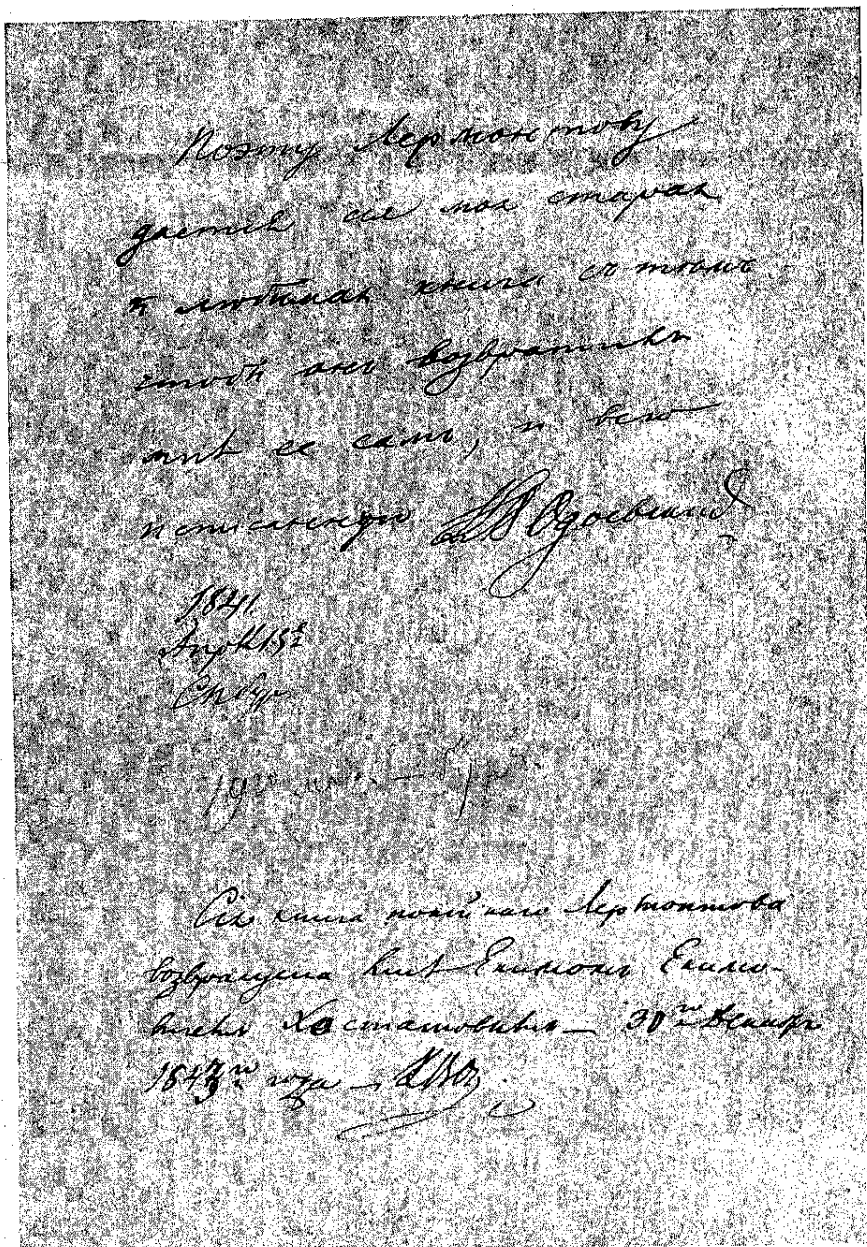 Поэту Лермонтову
дается сія моя старая
и любимая книга съ тѣмъ
чтобы онъ возвратилъ
мнѣ ее самъ, и всю
исписанную К. В. Одоевскій
1841
Апреля 13е
СПбург
Сія книга покойнаго Лермонтова
возвращена мнѣ Екимомъ Екимо-
вичемъ Хастатовымъ — 30го Декабр
1843го года — К.В.О.